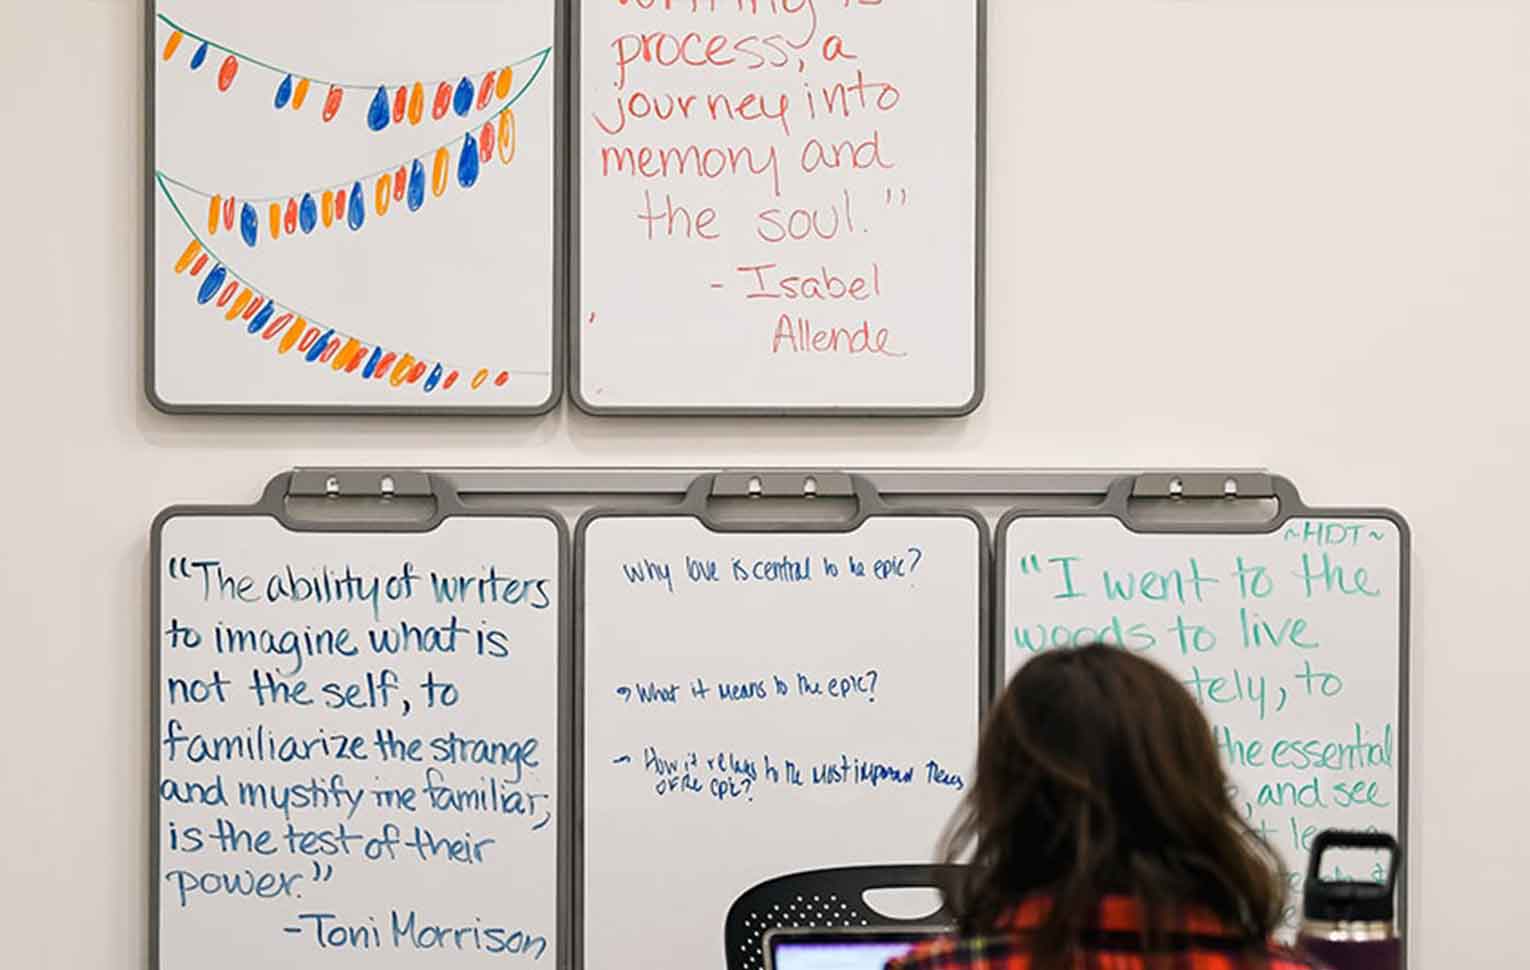 process, a
journey into
memory and
the soul."
- Isabel
Allende
"The ability of writers
to imagine what is
not the self, to
familiarize the strange
and mystify the familiar,
is the test of their
power."
-Toni Morrison
why love is central to the epic?
What it means to the epic?
- How it relates to the most important
of the epic?
~HDT~
"I went to the
woods to live
tely, to
the essential
, and see